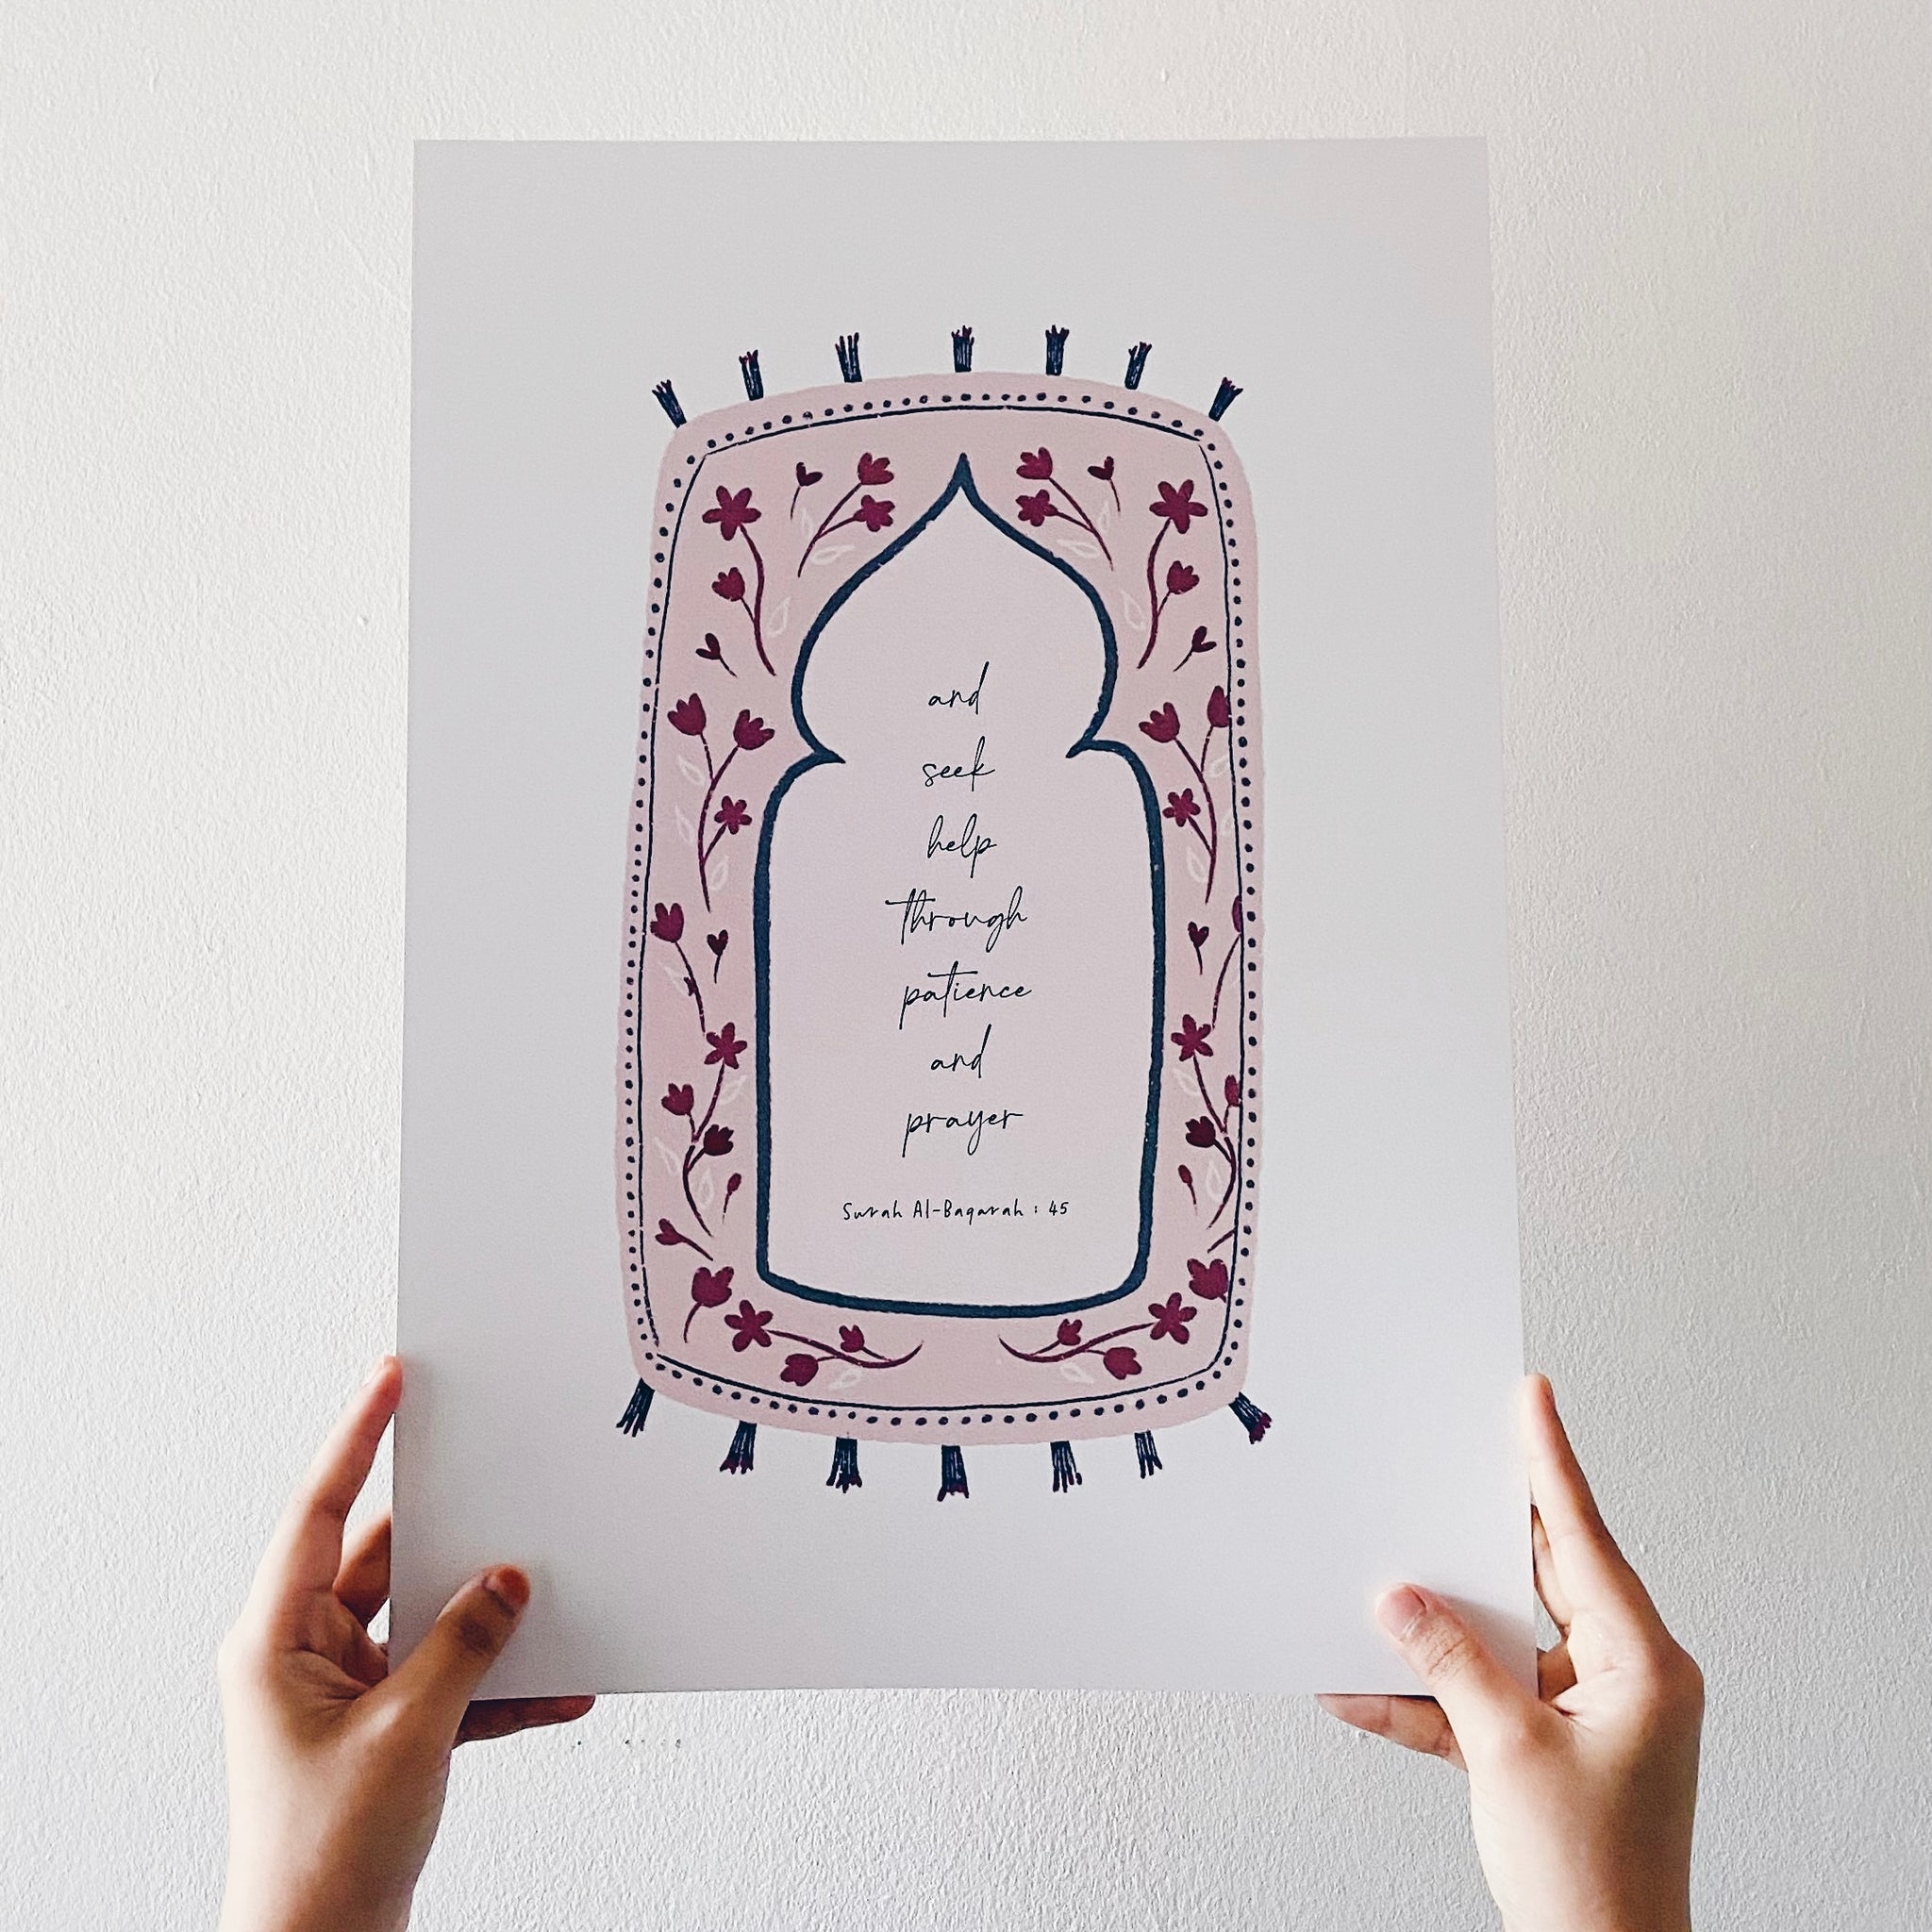 and
seek
help
through
patience
and
prayer
Surah Al-Baqarah : 45